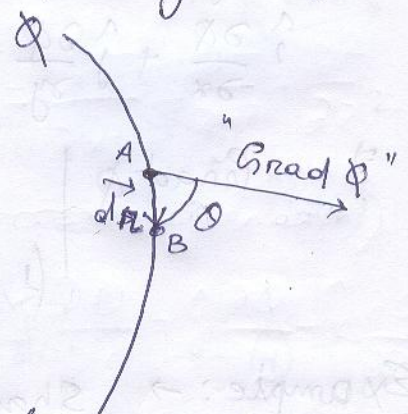 φ
A
"Grad φ"
dr
θ
B